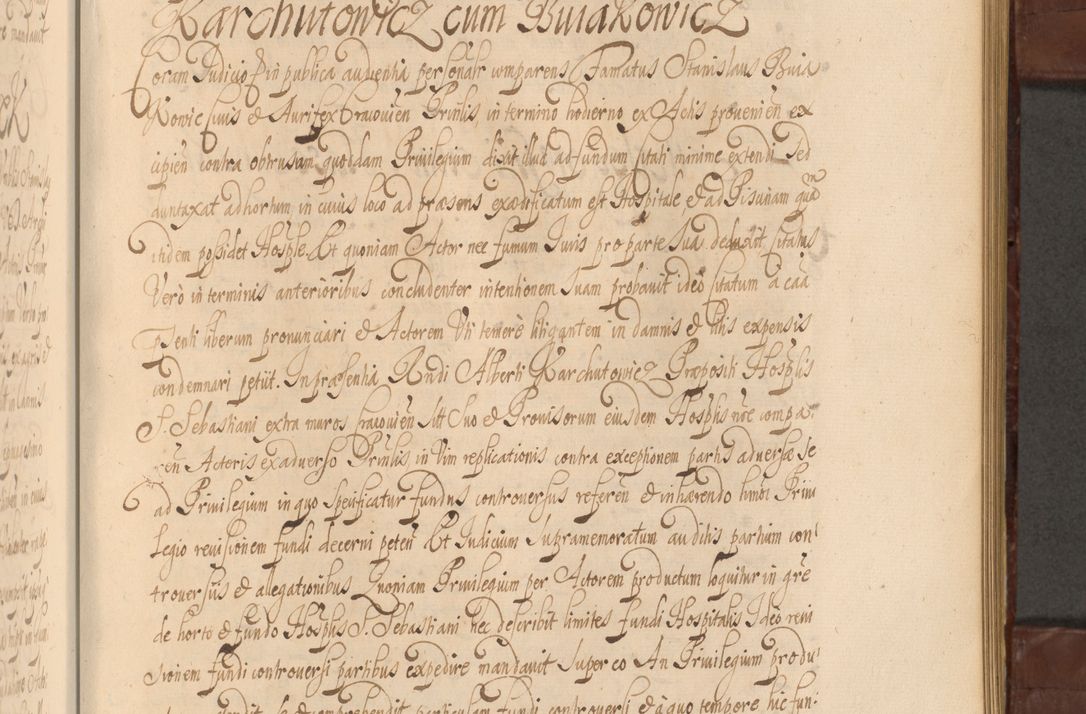 Karchutowicz cum Buiakowicz
Coram Iudicio & in publica audientia personalr comparens Famatus Stanislaus Buia
Kowic civis & Aurifex Cracovien Prinlis, in termino hodierno ex Actis provenien ex
cipien contra obtrusam quoddam Privilegium dixit illud ad fundum citati minime extendi sed
duntaxat ad hortum, in cuius loco ad præsens exædificatum est Hospitale, & ad Piscinam quam
itidem possidet Hosple. Et quoniam Actor nec fumum Iuris pro parte sua deduxit, citatus
Verò in terminis anterioribus concludenter intentionem suam probavit ideo citatum à caa
Psenti liberum pronunciari & Actorem Uti temerè litigantem in damnis & litis expensis
condemnari petiit. In præsentia Rndi Alberti Karchutowicz Præpositi Hosplis
S. Sebastiani extra muros Cracovien sitt Suo & Provisorum eiusdem Hosplis nõe compa
ren Actoris ex adverso Prinlis, in Vim replicationis contra exceptionem partis adversæ se
ad Privilegium in quo specificatur fundus controversus referen & inhærendo hmõi Privi
legio revisionem fundi decerni peten Et Iudicium supramemoratum auditis partium con
troversiis & allegationibus Quoniam Privilegium per Actorem productum loquitur in gñre
de horto & fundo Hosplis S. Sebastiani nec describit limites fundi Hospitalis Ideo revi
sionem fundi controversi partibus expedire mandavit super eo An Privilegium produ
particulam fundi controversi & à quo tempore hic fun